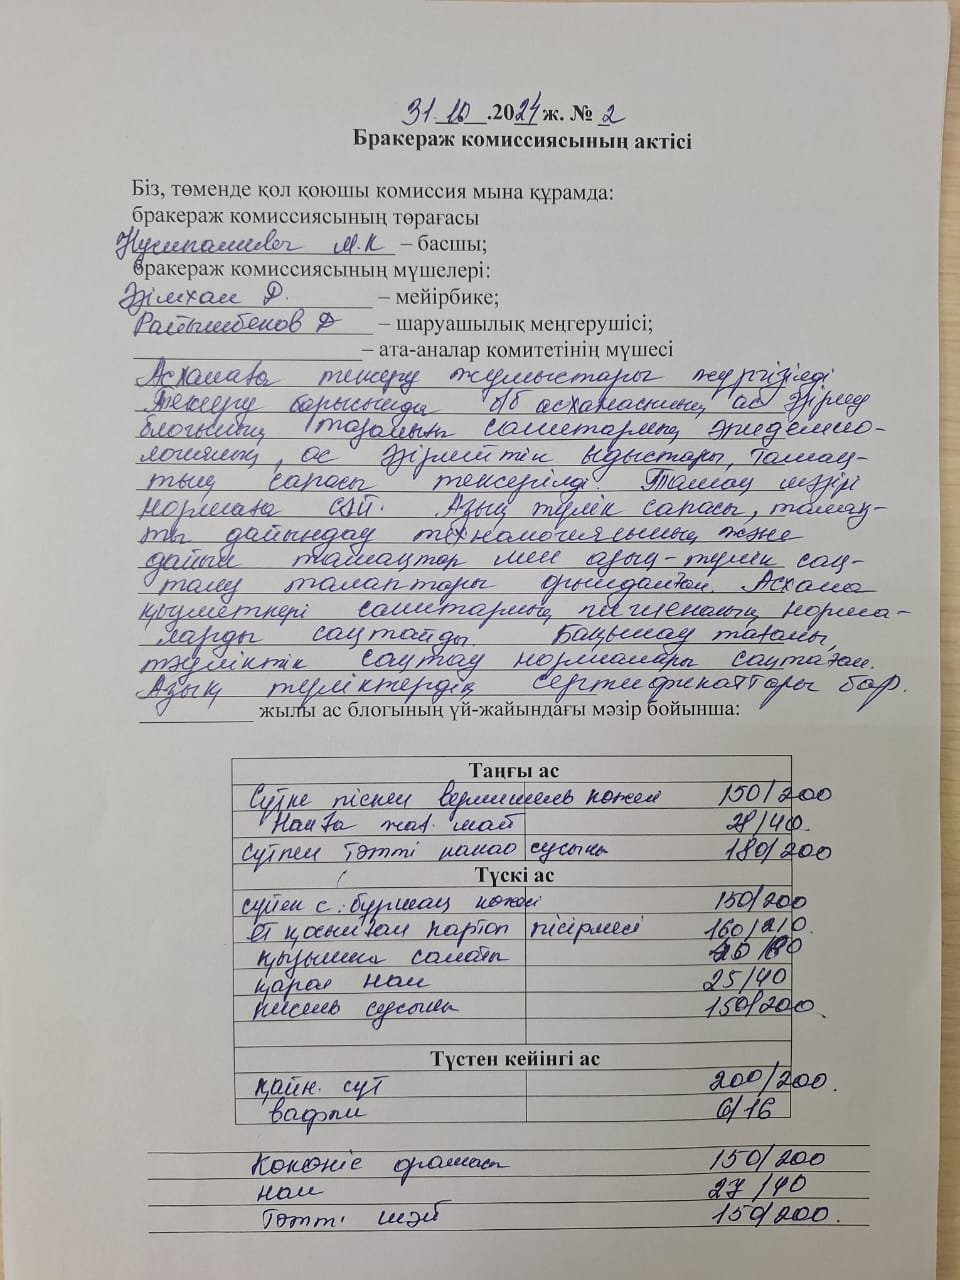 31.10.2024 ж. № 2
Бракераж комиссиясының актісі
Біз, төменде қол қоюшы комиссия мына құрамда:
бракераж комиссиясының төрағасы
М.К – басшы;
бракераж комиссиясының мүшелері:
Әзімхан Д. – мейірбике;
Райымбеков Д – шаруашылық меңгерушісі;
– ата-аналар комитетінің мүшесі
Асханаға тексеру жұмыстары жүргізілді
Тексеру барысында б/б асханасының ас әзірлеу
блогының тазалығы санитарлық эпидемио-
логиялық, ас әзірлейтін ыдыстары, тамақ-
тың сапасы тексерілді. Тамақ мәзірі
нормаға сай. Азық түлік сапасы, тамақ-
ты дайындау технологиясының және
дайын тамақтар мен азық-түлік сақ-
талу талаптары орындалған. Асхана
қызметкері санитарлық гигиеналық норма-
ларды сақтайды. Бақылау тағамы,
тәуліктік сақтау нормалары сақтаған.
Азық түліктердің сертификаттары бар.
жылы ас блогының үй-жайындағы мәзір бойынша:
Таңғы ас
Сүтке піскен вермишель көжесі 150/200
Нанға жағ. май 28/40.
Сүтпен тәтті какао сусыны 180/200
Түскі ас
сүйек с. бұршақ көжесі 150/200
ет қосылған картоп пісірмесі 160/210.
қызылша салаты
қара нан 25/40
кисель сусыны 150/200.
Түстен кейінгі ас
қайн. сүт 200/200.
вафли 6/16
Көкөніс орамасы 150/200
нан 27/40
Тәтті шәй 150/200.